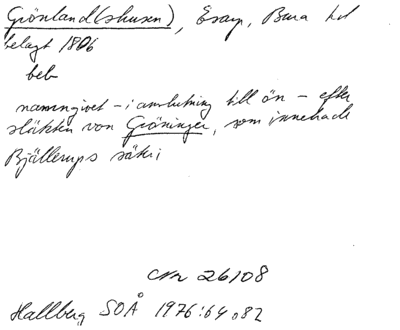 Grönland(shusen), Esarp, Bara hd
belagt 1806
beb
namngivet – i anslutning till ön – efter
släkten von Gröninger, som innehade
Bjällerups säteri
Nr 26108
Hallberg SOÅ 1976:64, 82